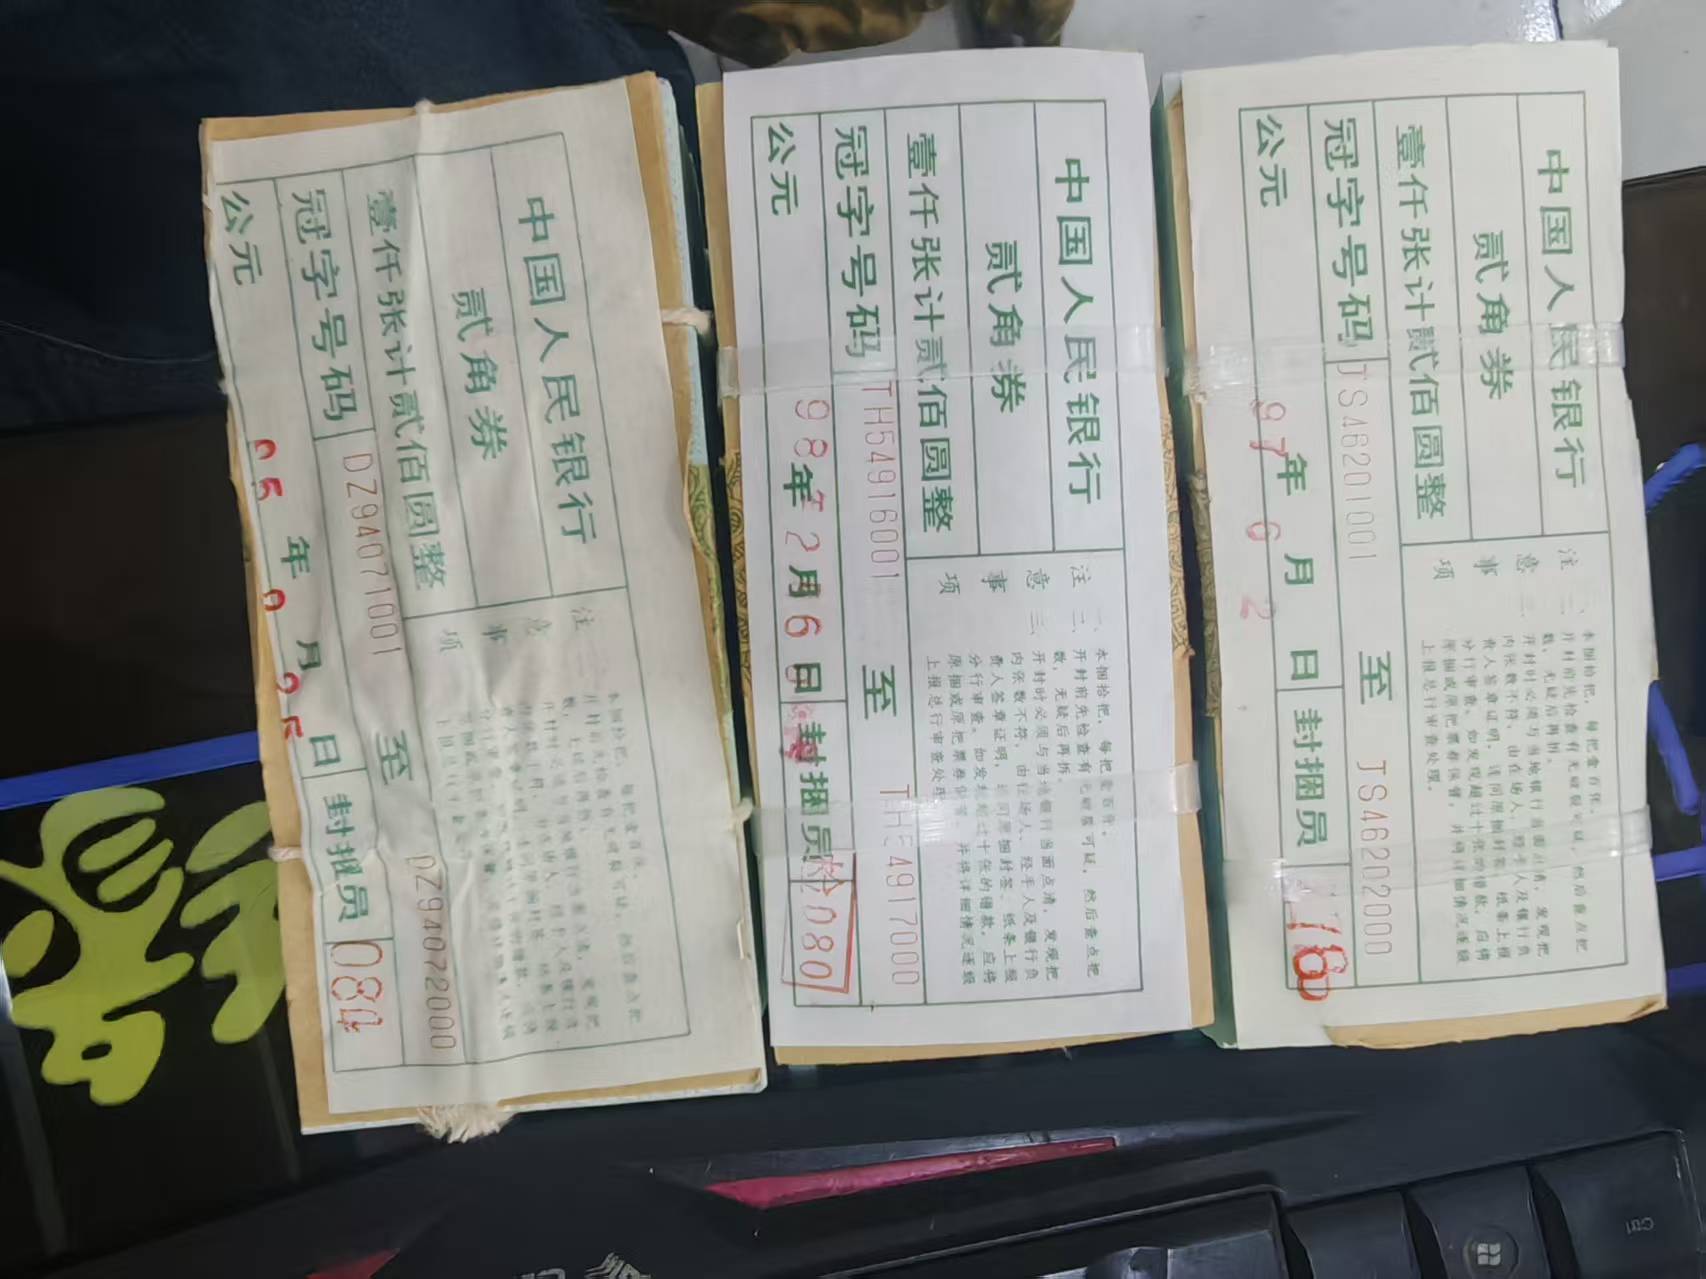 中国人民银行
贰角券
壹仟张计贰佰圆整
冠字号码 DZ94071001 至 DZ94072000
公元 95 年 9 月 25 日 封捆员 084
注意事项
中国人民银行
贰角券
壹仟张计贰佰圆整
冠字号码 TH54916001 至 TH54917000
公元 98年2月6日 封捆员 080
注意事项
一、本捆拾把,每把壹百张。
二、开封前先检查有无破裂可疑,然后查点把
数,无疑后再拆。
三、开封时必须与当地银行当面点清,发现把
内张数不符,由在场人、经手人及银行负
责人签章证明,连同原捆封签、纸条上报
分行审查。如发现超过十张的错款,应将
原捆或原把票券保管,并将详细情况逐级
上报总行审查处理。
中国人民银行
贰角券
壹仟张计贰佰圆整
冠字号码 JS46201001 至 JS46202000
公元 97年 6 月 2 日 封捆员
注意事项
一、本捆拾把,每把壹百张。
二、开封前先检查有无破裂可疑,然后查点把
数,无疑后再拆。
三、开封时必须与当地银行当面点清,发现把
内张数不符,由在场人、经手人及银行负
责人签章证明,连同原捆封签、纸条上报
分行审查。如发现超过十张的错款,应将
原捆或原把票券保管,并将详细情况逐级
上报总行审查处理。
Ctrl